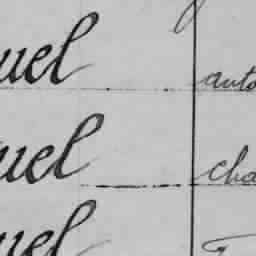 uel auto
uel cha
uel